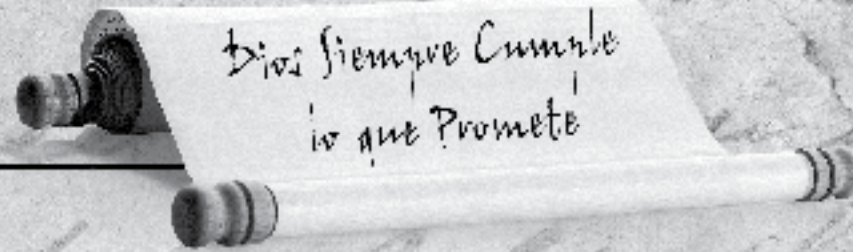 Dios Siempre Cumple
lo que Promete